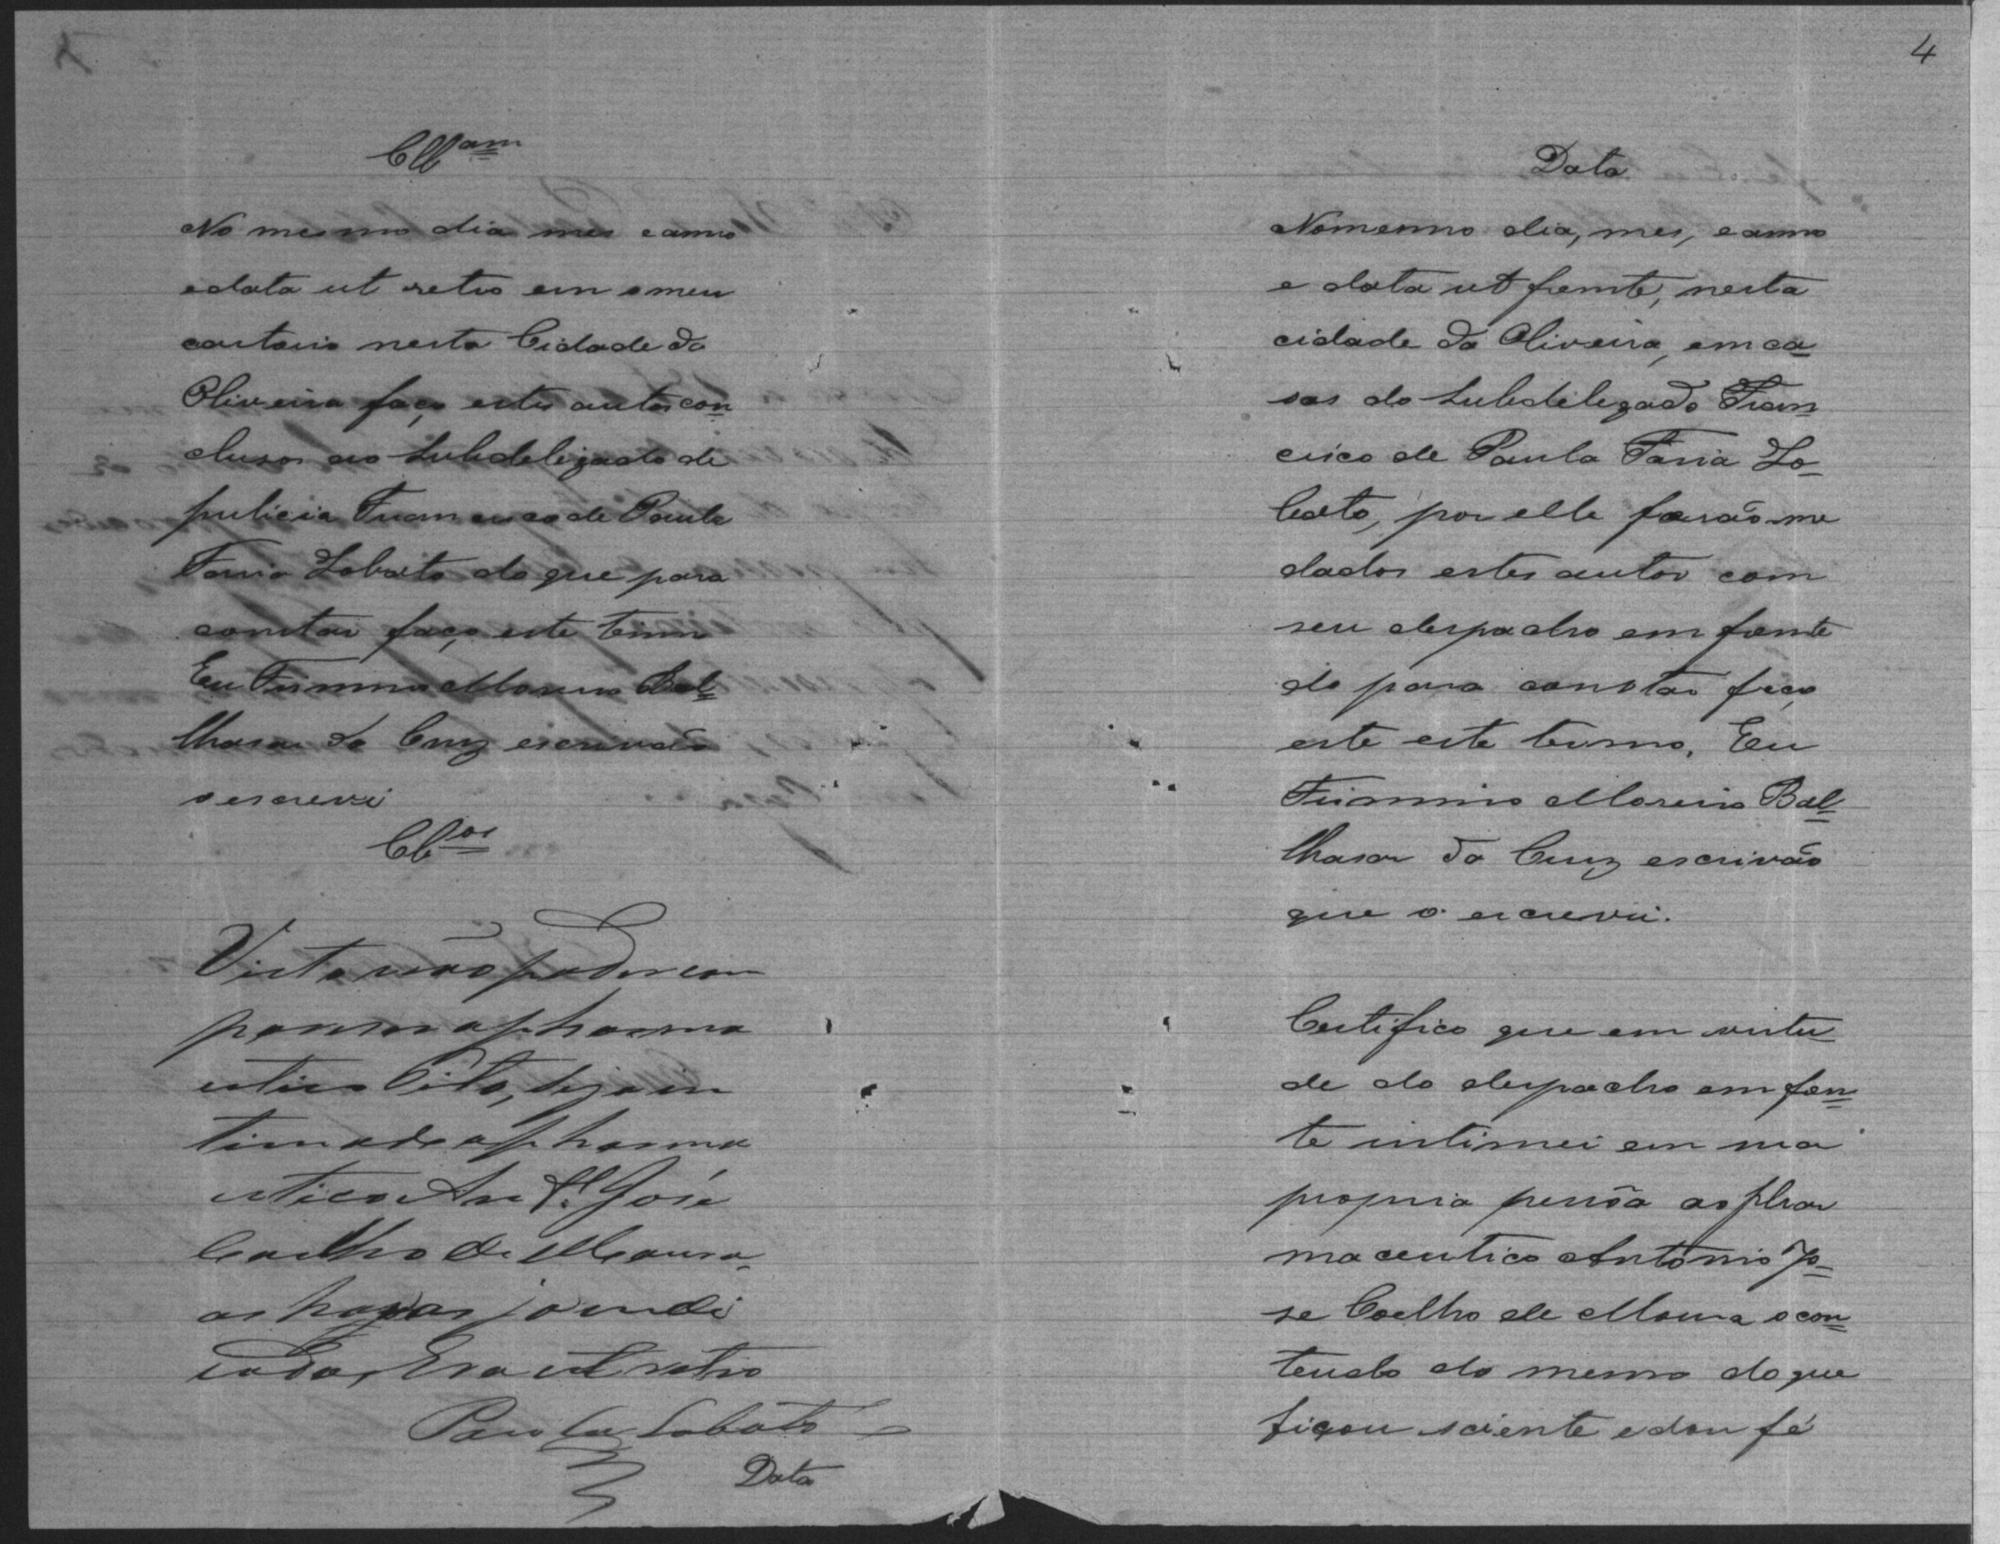 Cllam
No mesmo dia mes e anno
e data ut retro em o meu
cartorio nesta Cidade da
Oliveira faço estes autos con
clusos ao Subdelegado de
pulicia Francisco de Paula
Faria Lobato do que para
constar faço este termo
Eu Firmino Moreira Bal
thasar da Cruz escrivão
o escrevi
Clos
Visto não poder com
parecer o pharma
ceutico Cito, seja in
timado o pharma
ceutico Anto. José
Coelho de Moura
as horas ja indi
cadas, Era ut retro
Paula Lobato
Data
4
Data
No mesmo dia, mes, e anno
e data ut frente, nesta
cidade da Oliveira, em ca
sas do Subdelegado Fran
cisco de Paula Faria Lo
bato, por elle forão me
dados estes autos com
seu despacho em frente
do para constar faço
este este termo. Eu
Firmino Moreira Bal
thasar da Cruz escrivão
que o escrevi.
Certifico que em virtu
de do despacho em fren
te intimei em sua
propria pessôa ao Phar
maceutico Antonio Jo
se Coelho de Moura o con
teudo do mesmo do que
ficou sciente e dou fé